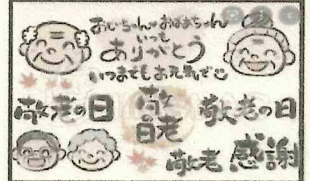 おじいちゃん♥おばあちゃん
いつも
ありがとう
いつまでもお元気で
敬老の日
敬老の日
敬老の日
敬老
感謝